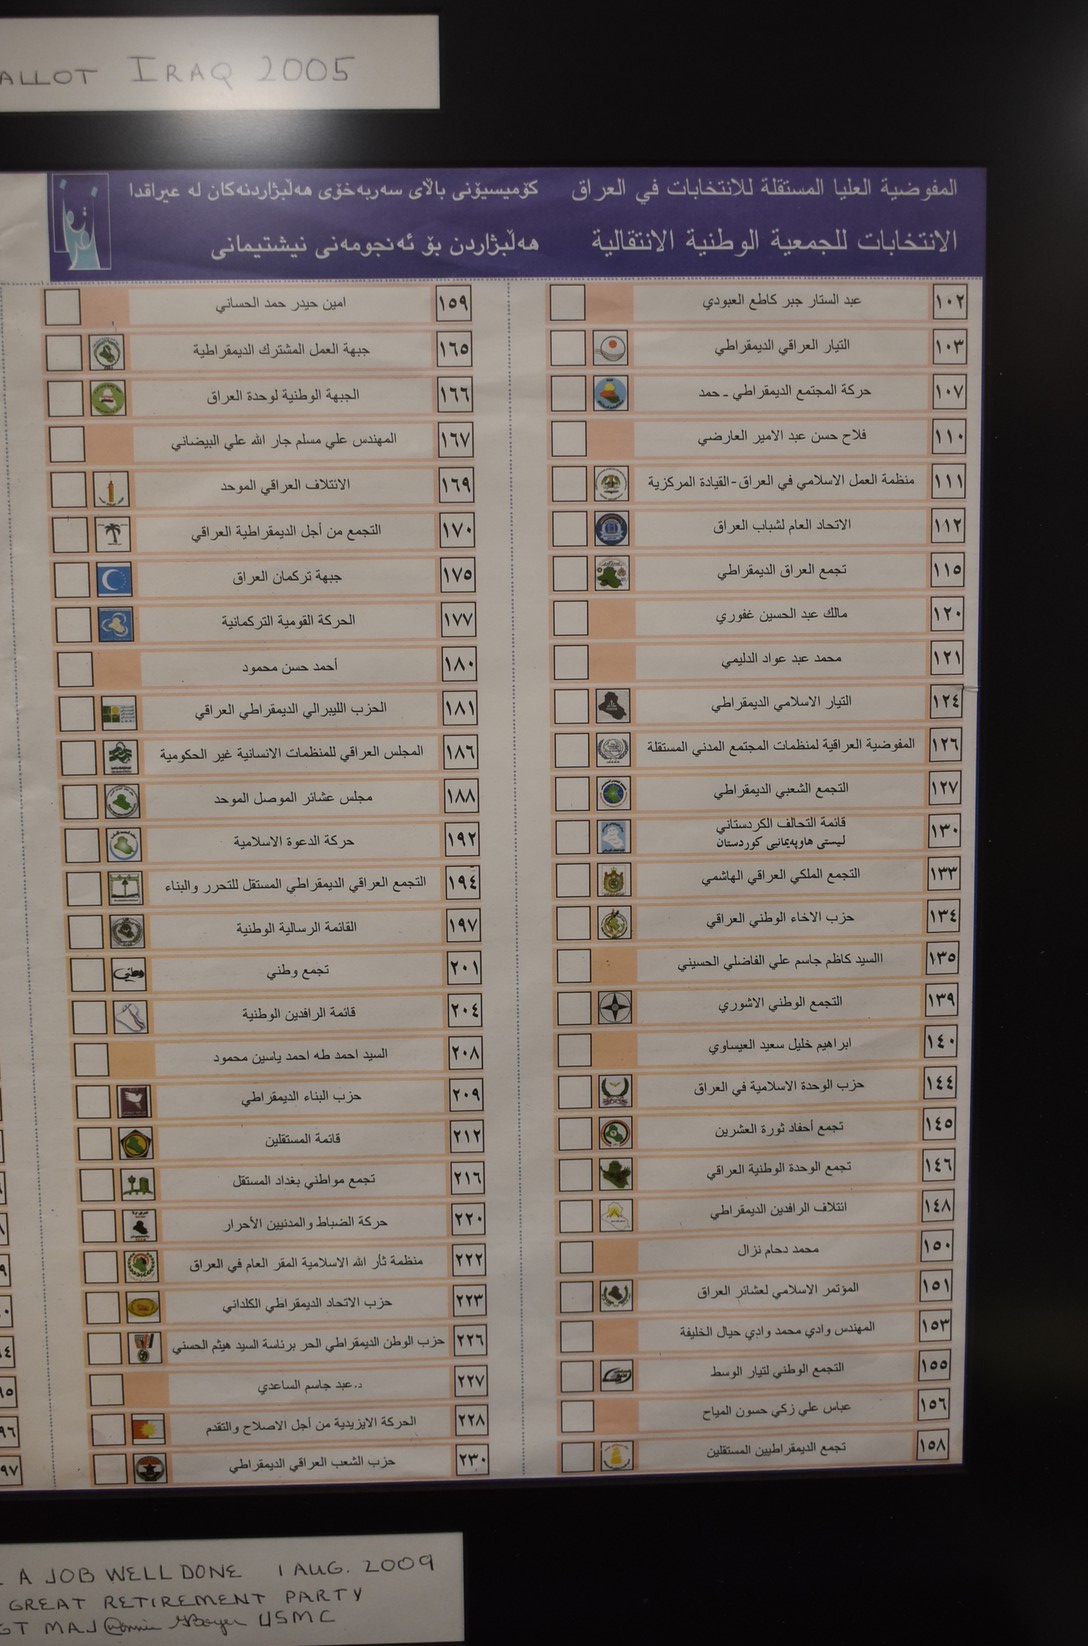 ALLOT IRAQ 2005
المفوضية العليا المستقلة للانتخابات في العراق
كۆمیسیۆنی باڵای سەربەخۆی هەڵبژاردنەکان لە عیراقدا
الانتخابات للجمعية الوطنية الانتقالية
هەڵبژاردن بۆ ئەنجومەنی نیشتیمانی
١٠٢ عبد الستار جبر كاطع العبودي
١٠٣ التيار العراقي الديمقراطي
١٠٧ حركة المجتمع الديمقراطي ـ حمد
١١٠ فلاح حسن عبد الامير العارضي
١١١ منظمة العمل الاسلامي في العراق-القيادة المركزية
١١٢ الاتحاد العام لشباب العراق
١١٥ تجمع العراق الديمقراطي
١٢٠ مالك عبد الحسين غفوري
١٢١ محمد عبد عواد الدليمي
١٢٤ التيار الاسلامي الديمقراطي
١٢٦ المفوضية العراقية لمنظمات المجتمع المدني المستقلة
١٢٧ التجمع الشعبي الديمقراطي
١٣٠ قائمة التحالف الكردستاني
لیستی هاوپەیمانیی کوردستان
١٣٣ التجمع الملكي العراقي الهاشمي
١٣٤ حزب الاخاء الوطني العراقي
١٣٥ االسيد كاظم جاسم علي الفاضلي الحسيني
١٣٩ التجمع الوطني الاشوري
١٤٠ ابراهيم خليل سعيد العيساوي
١٤٤ حزب الوحدة الاسلامية في العراق
١٤٥ تجمع أحفاد ثورة العشرين
١٤٦ تجمع الوحدة الوطنية العراقي
١٤٨ ائتلاف الرافدين الديمقراطي
١٥٠ محمد دحام نزال
١٥١ المؤتمر الاسلامي لعشائر العراق
١٥٣ المهندس وادي محمد وادي حيال الخليفة
١٥٥ التجمع الوطني لتيار الوسط
١٥٦ عباس علي زكي حسون المياح
١٥٨ تجمع الديمقراطيين المستقلين
١٥٩ امين حيدر حمد الحساني
١٦٥ جبهة العمل المشترك الديمقراطية
١٦٦ الجبهة الوطنية لوحدة العراق
١٦٧ المهندس علي مسلم جار الله علي البيضاني
١٦٩ الائتلاف العراقي الموحد
١٧٠ التجمع من أجل الديمقراطية العراقي
١٧٥ جبهة تركمان العراق
١٧٧ الحركة القومية التركمانية
١٨٠ أحمد حسن محمود
١٨١ الحزب الليبرالي الديمقراطي العراقي
١٨٦ المجلس العراقي للمنظمات الانسانية غير الحكومية
١٨٨ مجلس عشائر الموصل الموحد
١٩٢ حركة الدعوة الاسلامية
١٩٤ التجمع العراقي الديمقراطي المستقل للتحرر والبناء
١٩٧ القائمة الرسالية الوطنية
٢٠١ تجمع وطني
٢٠٤ قائمة الرافدين الوطنية
٢٠٨ السيد احمد طه احمد ياسين محمود
٢٠٩ حزب البناء الديمقراطي
٢١٢ قائمة المستقلين
٢١٦ تجمع مواطني بغداد المستقل
٢٢٠ حركة الضباط والمدنيين الأحرار
٢٢٢ منظمة ثأر الله الاسلامية المقر العام في العراق
٢٢٣ حزب الاتحاد الديمقراطي الكلداني
٢٢٦ حزب الوطن الديمقراطي الحر برئاسة السيد هيثم الحسني
٢٢٧ د.عبد جاسم الساعدي
٢٢٨ الحركة الايزيدية من أجل الاصلاح والتقدم
٢٣٠ حزب الشعب العراقي الديمقراطي
A JOB WELL DONE 1 AUG. 2009
GREAT RETIREMENT PARTY
GT MAJ Boyer USMC